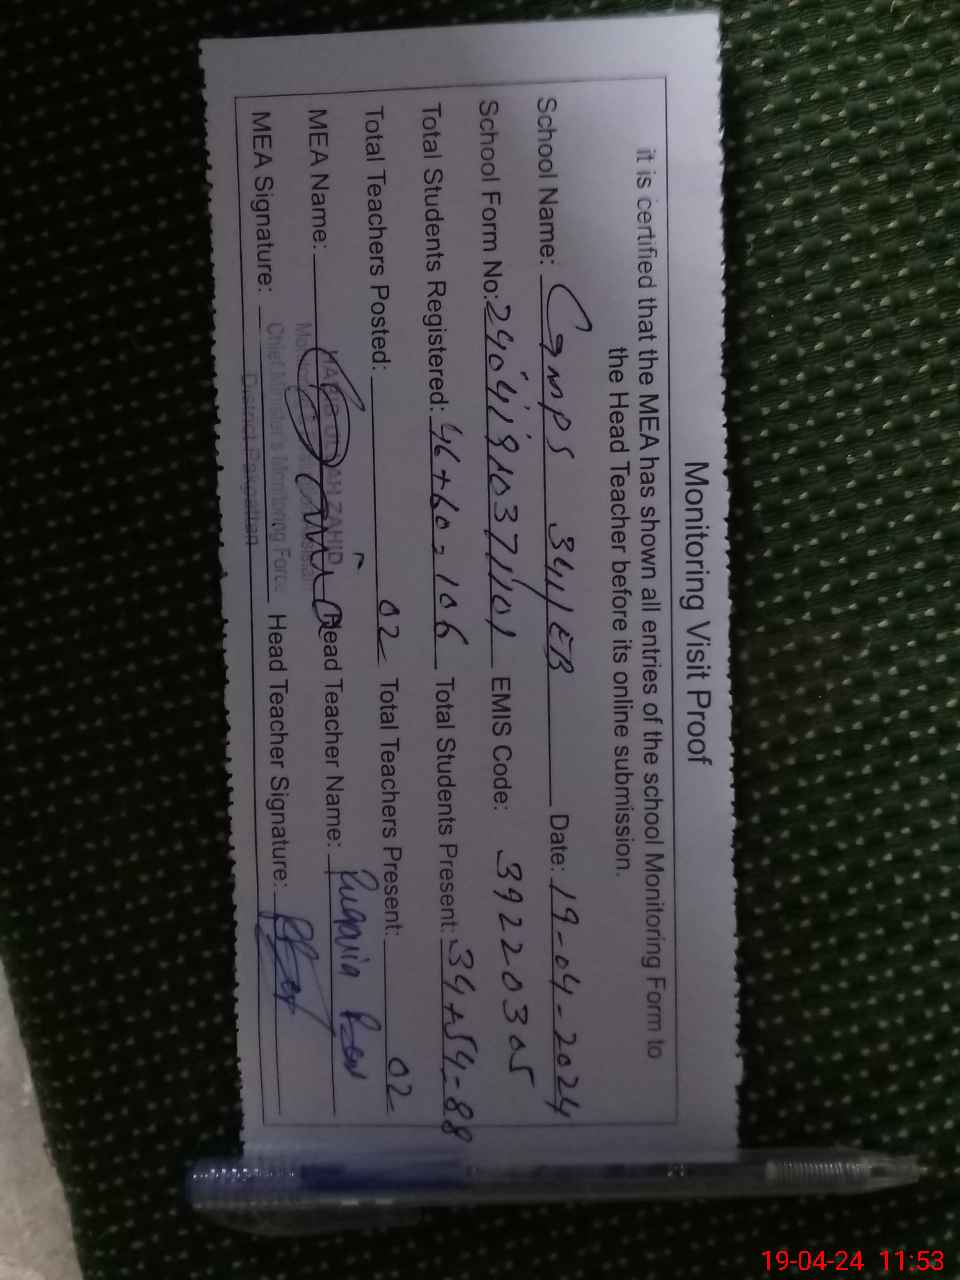 Monitoring Visit Proof
it is certified that the MEA has shown all entries of the school Monitoring Form to
the Head Teacher before its online submission.
School Name: GMPS 34/EB Date: 19-04-2024
School Form No: EMIS Code: 39220305
Total Students Registered: 46+60=106 Total Students Present: 34+54=88
Total Teachers Posted: 02 Total Teachers Present: 02
MEA Name: ZAHID Head Teacher Name: Ruqayia
Chief Minister's Monitoring Force
MEA Signature: Head Teacher Signature:
District Pakpattan
19-04-24 11:53